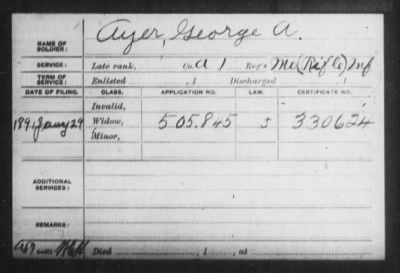 Ayer, George A.
NAME OF SOLDIER:
SERVICE: Late rank, Co. A 1 Reg't Me (Rifle) Inf
TERM OF SERVICE: Enlisted , 1 Discharged , 1
DATE OF FILING. CLASS. APPLICATION NO. LAW. CERTIFICATE NO.
Invalid,
1891 Jany 29 Widow, 505.845 S 330624
Minor,
ADDITIONAL SERVICES:
REMARKS:
Died , 1 , at